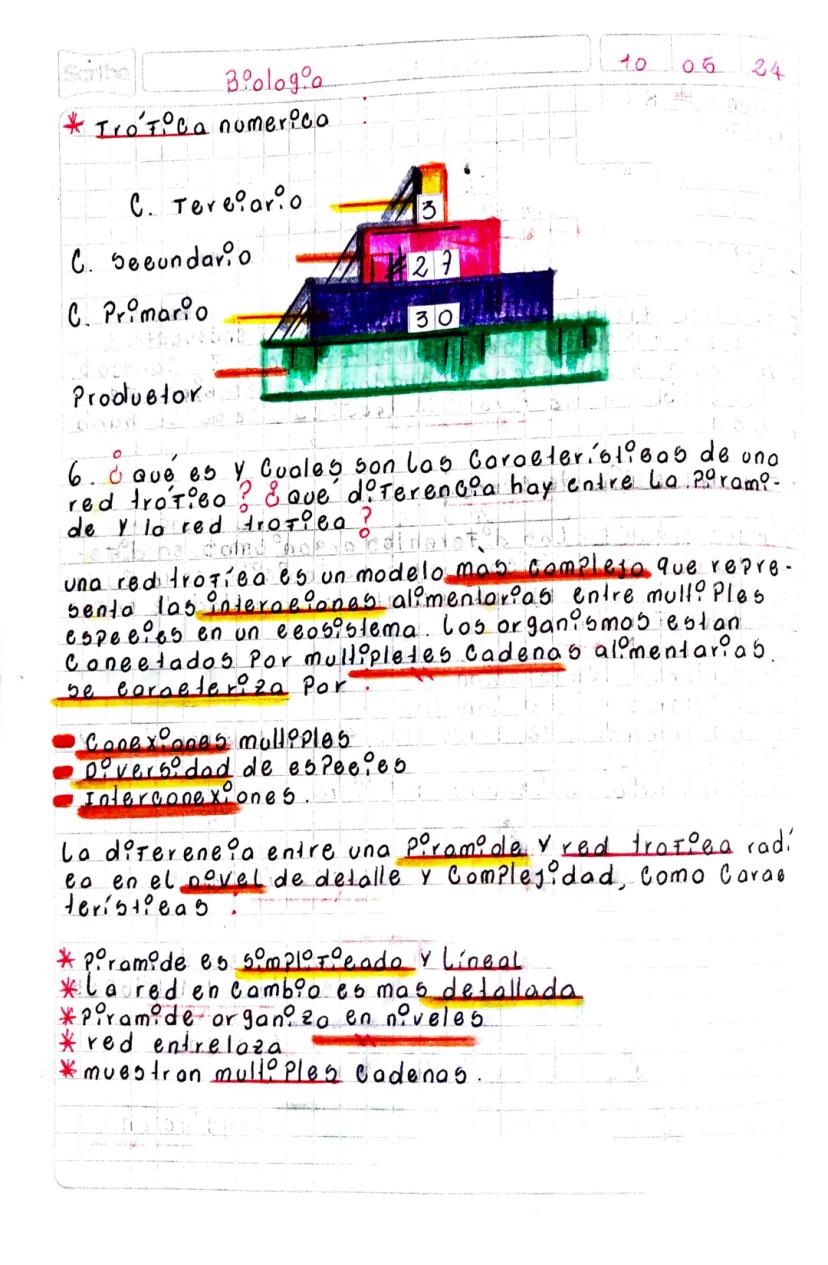 Scribe
Biología
10 05 24
* Trófica numerica :
C. Terciario
3
C. Secundario
27
C. Primario
30
Productor
6. ¿ qué es y Cuales son las Características de una
red trófica ? ¿ que diferencia hay entre la Pirami-
de y la red trofica ?
una red trofíca es un modelo más complejo que repre-
senta las interaciones alimentarias entre multiples
especies en un ecosistema. Los organismos estan
Conectados Por multipletes Cadenas alimentarias.
se caracteriza Por :
Conexiones multiples
Diversidad de especies
Interconexiones.
La diferencia entre una Piramide y red trofica radi
ca en el nivel de detalle y Complejidad, Como Carac
terísticas :
* Piramide es simplificado y Líneal
* La red en Cambio es mas detallada
* Piramide organiza en niveles
* red entrelaza
* muestran multiples Cadenas.